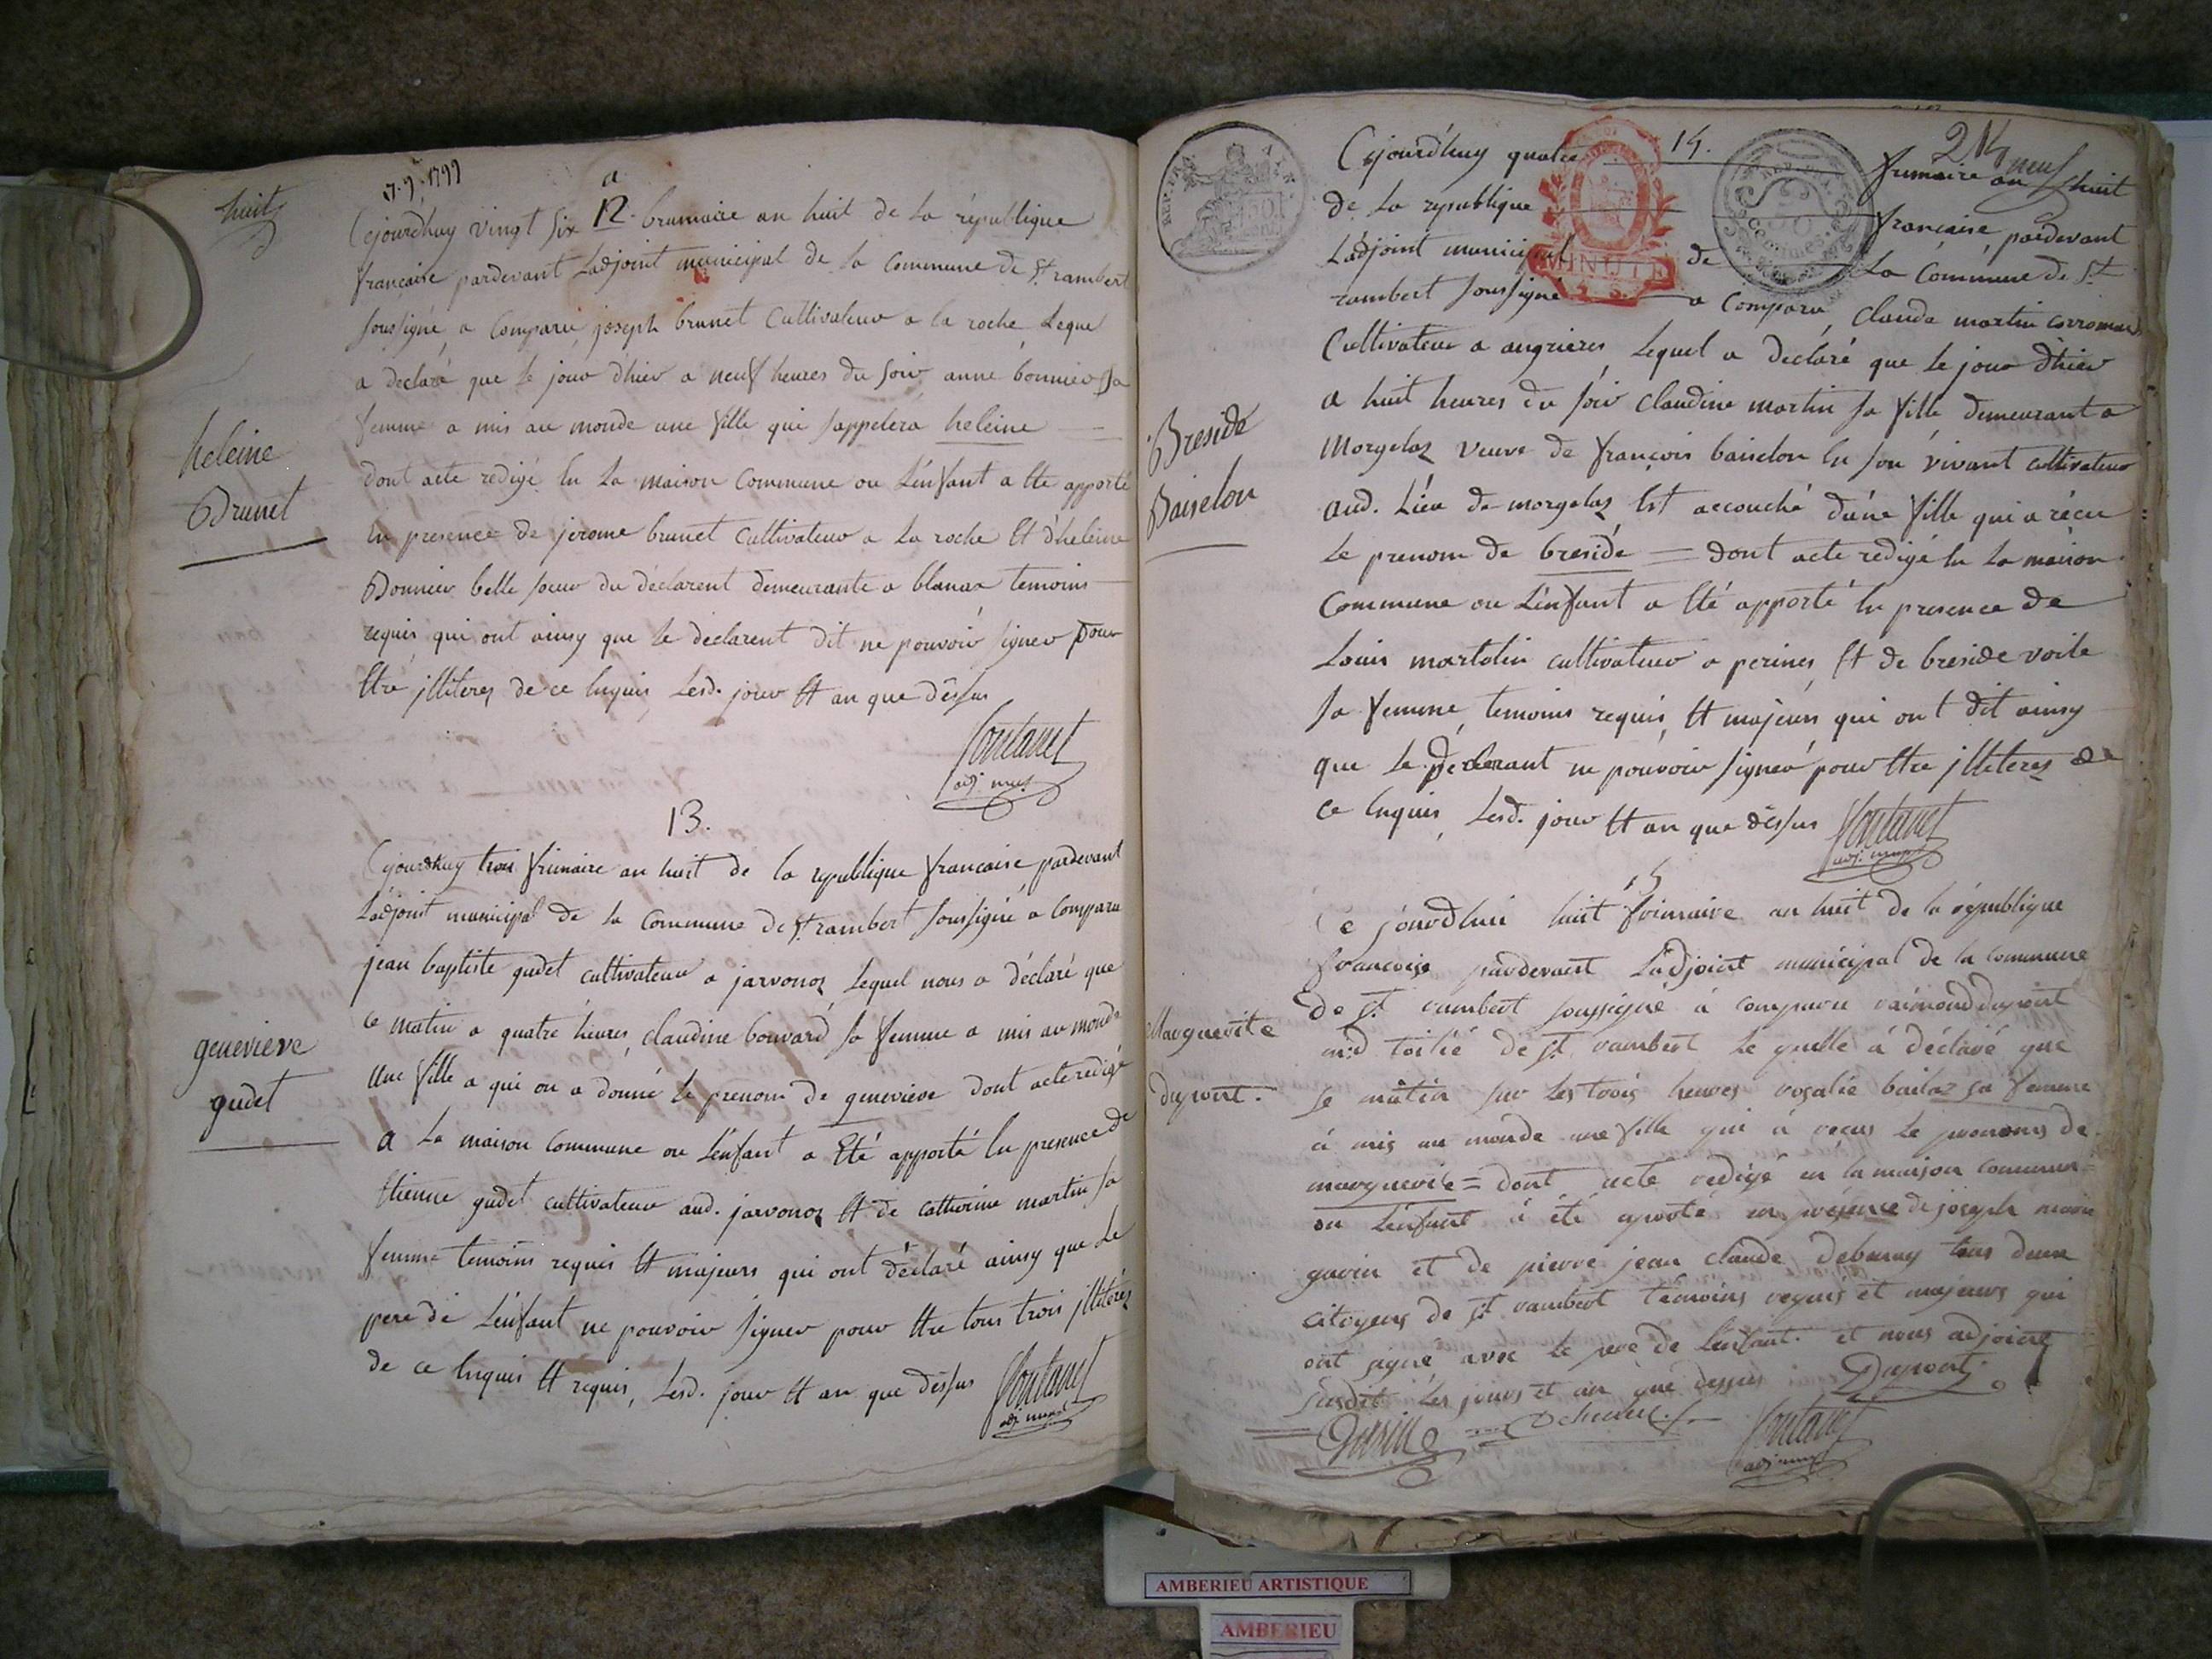 huit
17.9.1799
a
12.
Cejourdhuy vingt six brumaire an huit de la république
française pardevant Ladjoint municipal de la Commune de St. rambert
soussigné a Comparu joseph brunet Cultivateur a la roche Lequel
a declaré que le jour d'hier a neuf heures du soir anne bonnier Sa
femme a mis au monde une fille qui sappelera heleine
heleine
Brunet
dont acte redigé En La maison Commune ou L'enfant a Eté apporté
En presence de jerome brunet Cultivateur a La roche Et d'heleine
Bonnier belle soeur du déclarent demeurante a blanaz temoins
requis qui ont ainsy que le declarent dit ne pouvoir signer pour
Etre jlliteres de ce Enquis Lesd. jour Et an que dessus
adj. mup.
13.
Cejourdhuy trois frimaire an huit de la republique francaise pardevant
Ladjoint municipal de la Commune de St. rambert soussigné a Comparu
jean baptiste gudet cultivateur a javornoz Lequel nous a déclaré que
ce matin a quatre heures claudine bouvard sa femme a mis au monde
une fille a qui on a donné le prenom de genevieve dont acte redigé
genevieve
gudet
a La maison Commune ou L'enfant a Eté apporté En presence de
Etienne gudet cultivateur aud. javornoz Et de Catherine martin sa
femme temoins requis Et majeurs qui ont déclaré ainsy que le
pere de L'enfant ne pouvoir signer pour Etre tous trois jlliterés
de ce Enquis Et requis, Lesd. jour Et an que dessus
adj. mup.
REP. FRA
214
neuf
14.
MINUTE
Cejourd'huy quatre frimaire an huit
de La republique francaise pardevant
L'adjoint municipal de La Commune de St.
rambert soussigné a Comparu Claude martin
Cultivateur a angrieres Lequel a declaré que le jour d'hier
a huit heures du soir Claudine martin sa fille demeurant a
Morgelaz veuve de françois baiselon En son vivant cultivateur
aud. Lieu de morgelaz Est accouché d'une fille qui a récu
Breside
Baiselon
Le prenom de breside = dont acte redigé En La maison
Commune ou L'enfant a Eté apporté En presence de
Louis martelin cultivateur a perines Et de breside voile
sa femme temoins requis Et majeurs qui ont dit ainsy
que le déclarant ne pouvoir signer pour Etre jlliteres de
ce Enquis Lesd. jour Et an que dessus
adj. mup.
15
Ce jourdhui huit frimaire an huit de la république
francoise pardevant L'adjoint municipal de la commune
de St. rambert soussigné à comparu raimond dupont
md. toilié de St. rambert Le quelle à déclaré que
se mâtin sur les trois heures rosalie bailaz sa femme
à mis au monde une fille qui à reçus Le prenoms de
Marguerite
dupont.
marguerite = dont acte redigé en la maison commune
ou L'enfant à été aporté en présence de joseph marie
et de pierre jean claude tous deux
citoyens de St. rambert témoins requis et majeurs qui
ont signe avec le pere de L'enfant et nous adjoint
susdit Les jours et an que dessus
Dupont
adj. mup.
AMBERIEU ARTISTIQUE
AMBERIEU